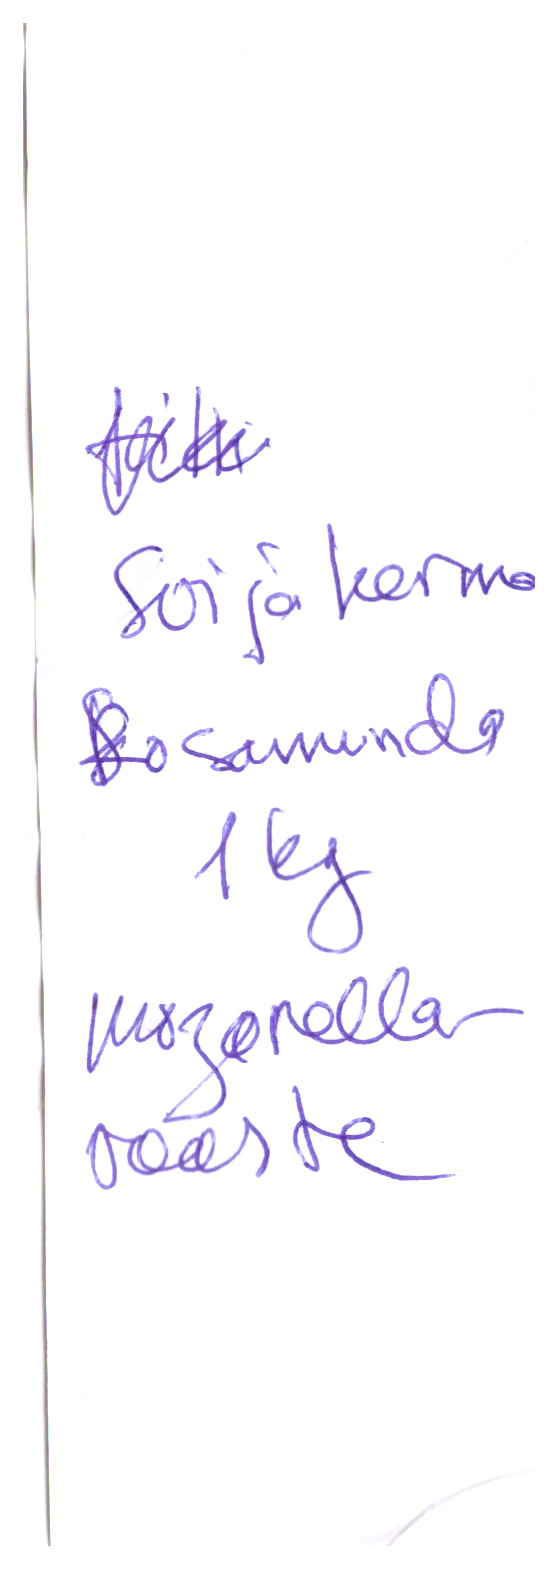 Soijakerma
Rosamunda
1 kg
mozarella-
raaste